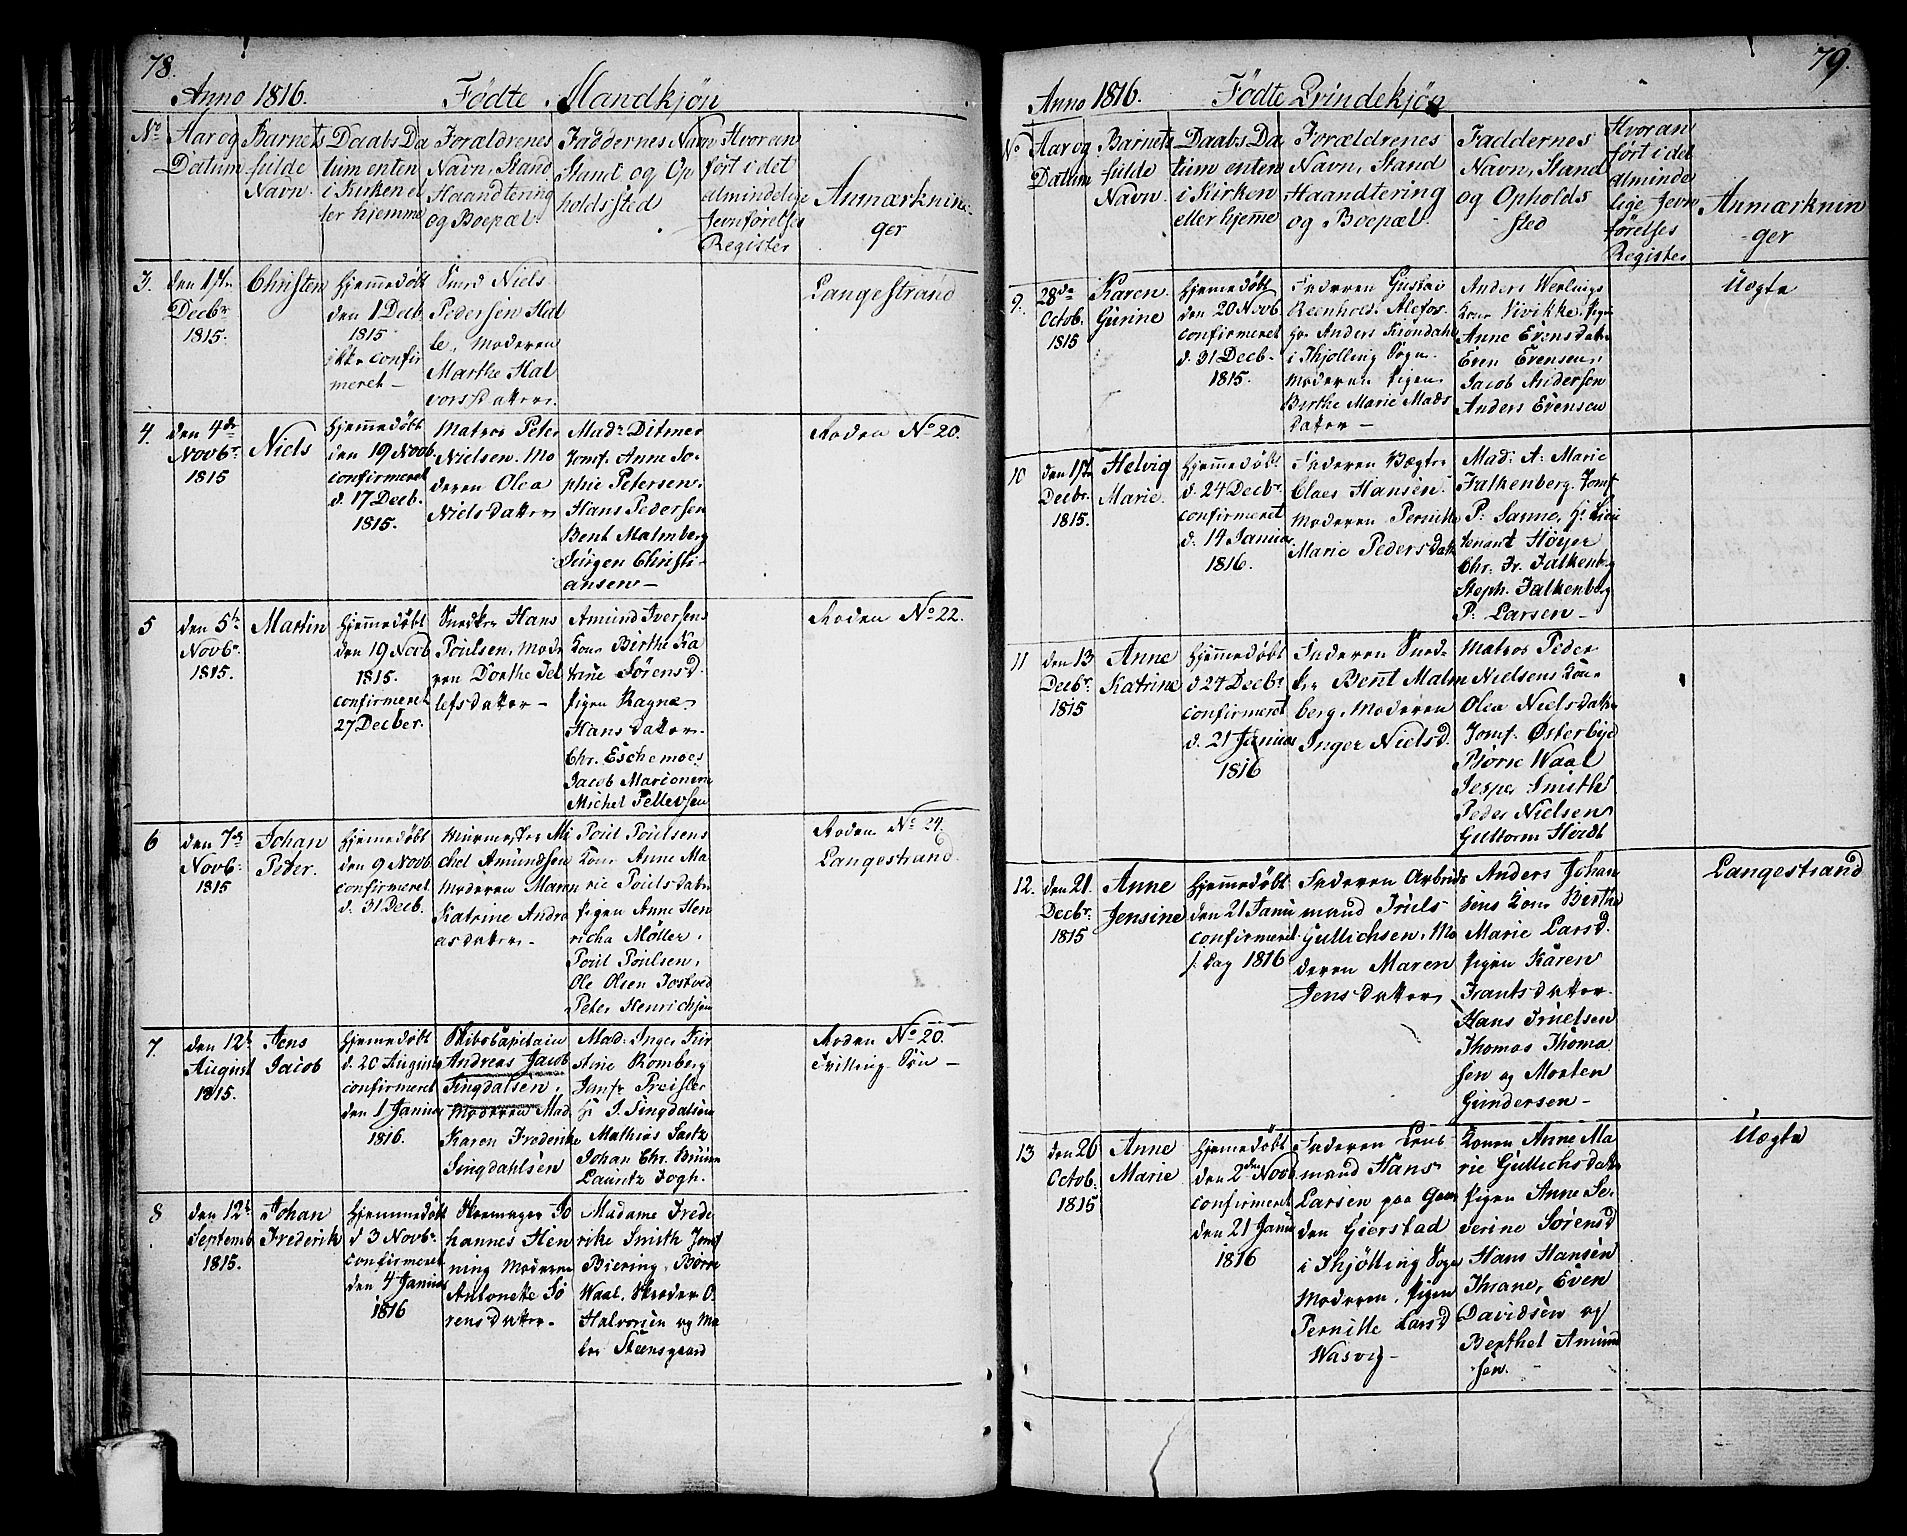 78.
Anno 1816. Fødte Mandkjøn
No
Aar og
Datum
Barnets
fulde
Navn.
Daabs Da
tum enten
i Kirken el
ler hjemme
Forældrenes
Navn, Stand
Haandtering
og Boepæl
Faddernes Navn
Stand og Op
holdssted
Hvor an
ført i det
almindelige
Jevnførelses
Register
Anmærknin
ger
3.
den 1ste
Decbr
1815.
Christen
Hjemmedøbt
den 1 Decb.
1815
ikke confir
meret
Niels
Pedersen Hal
le, Moderen
Marthe Hal
vorsdatter.
Langestrand
4.
den 4de
Novbr
1815
Niels
Hjemmedøbt
den 19 Novb
confirmeret
d. 17 Decb.
1815.
Matros Peter
Nielsen. Mo
deren Olea
Nielsdatter
Madr Ditmer
Jomf. Anne So-
phie Petersen.
Hans Pedersen
Bent Malmberg
Jürgen Christi-
ansen
Roden No 20.
5
den 5te
Novbr.
1815.
Martin
Hjemmedøbt
den 19 Novb
1815.
confirmeret
27 Decber.
Snedker Hans
Poulsen, Mode
ren Dorthe Tel
lefsdatter
Amund Iversens
Kone Birthe Ka
trine Sørensd.
Pigen Ragne
Hansdatter.
Chr. Eschemoes
Jacob
Michel Tellevsen
Roden No 22.
6
den 7de
Novb:
1815
Johan
Peder.
Hjemedøbt
den 9 Novb
confirmeret
d. 31 Decb.
Muurmester Mi
chel Amundsen
Moderen Maren
Katrine Andre
asdatter
Poul Poulsens
Kone Anne Ma
rie Poulsdatr
Pigen Anne Hen
richa Møller.
Poul Poulsen,
Ole Olsen
Peter Henrichsen
Roden No 24.
Langestrand.
7.
den 12te
August
1815.
Jens
Jacob
Hjemmedøbt
d. 20 August
confirmeret
den 1 Januar
1816.
Skibscapitain
Andreas Jacob
Singdalsen,
Moderen Mad.
Karen Frederikke
Singdahlsen
Mad: Inger Kir
stine Romberg
Jomfr Preisler
Hr J. Singdalsen
Mathias Sartz
Johan Chr. Bruun
Lauritz Fogh.
Roden No 20.
Tvilling Søn
8
den 12te
Septemb
1815.
Johan
Frederik
Hjemmedøbt
d 3 Novbr
confirmeret
den 4 Januar
1816
Skomager Jo
hannes Hen
ning Moderen
Antonette Sø
rensdatter
Madame Frede
rike Smith Jomf
Biering. Børre
Waal. Skræder O.
Halvorsen og Ma
ler Steensgaard
79.
Anno 1816. Fødte Qvindekjøn
No
Aar og
Datum
Barnets
fulde
Navn.
Daabs Da
tum enten
i Kirken
eller hjemme
Forældrenes
Navn, Stand
Haandtering
og Boepæl
Faddernes
Navn, Stand
og Opholds
sted
Hvor an
ført i det
alminde
lige Jevn
førelses
Register
Anmærknin
ger
9.
28de
Octob.
1815
Karen
Gurine
Hjemmedøbt
den 20 Novb
confirmeret
d. 31 Decb.
1815.
Faderen Gustav
Reenhold
hos Anders
i Thjølling Sogn.
Moderen Pigen
Birthe Marie Mads
datter
Anders
Kone Vivikke, Pige
Anne Evensdatr
Even Evensen,
Jacob Andersen
Anders Evensen
Uægte
10
den 1ste
Decbr.
1815.
Helvig
Marie
Hjemmedøbt
d. 24 Decbr
confirmeret
d. 14 Januar
1816.
Faderen Vægter
Claes Hansen.
Moderen Pernille
Marie Pedersdatr
Mad: A: Marie
Falkenberg. Jomf
P: Sanne, Hr Lieu
tenant Höyer
Chr. Fr. Falkenberg
Steph. Falkenberg
P: Larsen
11
den 13
Decbr.
1815
Anne
Katrine
Hjemmedøbt
d 24 Decbr
confirmeret
d. 21 Januar
1816
Faderen Sned
ker Bent Malm
berg, Moderen
Inger Nielsd.
Matros Peder
Nielsens Kone
Olea Nielsdatr
Jomf. Østerbye
Børre Waal
Jesper Smith
Peder Nielsen
Guttorm Hvidt
12.
den 21.
Decbr.
1815
Anne
Jensine
Hjemmedøbt
den 21 Janu
confirmeret
s. Dag 1816
Faderen Arbeids
mand Truels
Gullichsen, Mo
deren Maren
Jensdatter
Anders Johan
sens Kone Birthe
Marie Larsd.
Pigen Karen
Frantsdatter.
Hans Truelsen
Thomas Thoma
sen og Morten
Gundersen
Langestrand
13
den 26
Octob:
1815
Anne
Marie
Hjemmedøbt
den 2den Novb
confirmeret
den 21 Janu
1816
Faderen Enke
mand Hans
Larsen paa Gaar
den Gierstad
i Thjølling Sogn
Moderen, Pigen
Pernille Larsd
Wasvig
Konen Anne Ma
rie Gullichsdatr
Pigen Anne Se
verine Sørensd
Hans Hansen
Thrane, Even
Davidsen og
Berthel Amund
sen.
Uægte